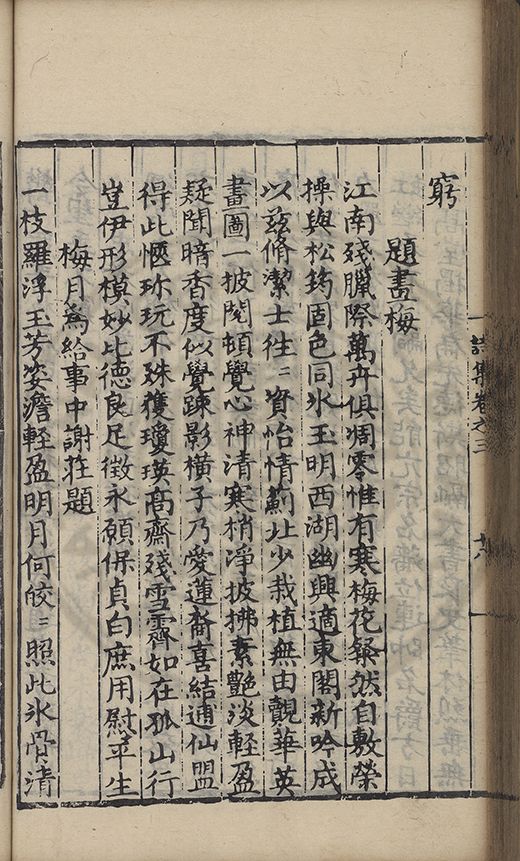 窮
題畫梅
江南殘臘際萬卉俱凋零惟有寒梅花粲然自敷榮
操與松筠固色同氷玉明西湖幽興適東閣新吟成
以兹脩潔士徃〻資怡情薊北少栽植無由覿華英
畫圖一披閱頓覺心神清寒梢淨披拂素艷淡輕盈
疑聞暗香度似覺踈影橫子乃愛蓮裔喜結逋仙盟
得此愜珎玩不殊獲瓊瑛高齋殘雪霽如在孤山行
豈伊形模妙比德良足徵永願保貞白庶用慰平生
梅月為給事中謝荘題
一枝羅浮玉芳姿澹輕盈明月何皎〻照此氷骨清
詩集卷之三